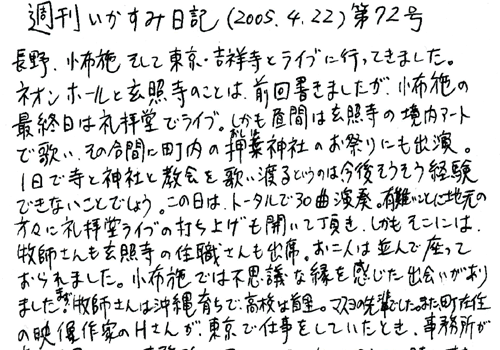 週刊いかすみ日記(2005.4.22)第72号
長野、小布施そして東京・吉祥寺とライブに行ってきました。
ネオンホールと玄照寺のことは、前回書きましたが、小布施の
最終日は礼拝堂でライブ。しかも昼間は玄照寺の境内アート
で歌い、その合間に町内の神社のお祭りにも出演。
1日で寺と神社と教会を歌い渡るというのは今後そうそう経験
できないことでしょう。この日は、トータルで30曲演奏。有難いことに地元の
方々に礼拝堂ライブの打ち上げも開いて頂き、しかもそこには、
牧師さんも玄照寺の住職さんも出席。お二人は並んで座って
おられました。小布施では不思議な縁を感じた出会いがあり
ました。牧師さんは沖縄育ちで、高校は首里。マスミの先輩でした。また町在住
の映像作家のHさんが、東京で仕事をしていたとき、事務所が